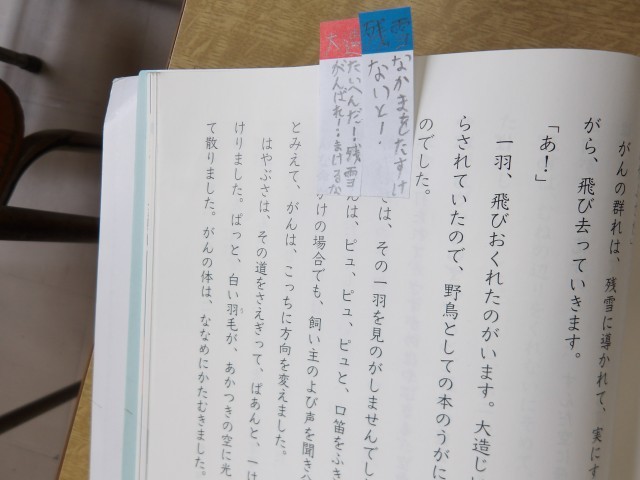 残雪
なかまをたすけ
ないと!
大造
たいへんだ!残雪
がんばれ!まけるな
がんの群れは、残雪に導かれて、実にす
がら、飛び去っていきます。
「あ!」
一羽、飛びおくれたのがいます。大造じ
らされていたので、野鳥としての本のうがに
のでした。
は、その一羽を見のがしませんでし
んは、ピュ、ピュ、ピュと、口笛をふき
けの場合でも、飼い主のよび声を聞き
とみえて、がんは、こっちに方向を変えました。
はやぶさは、その道をさえぎって、ぱあんと、一け
けりました。ぱっと、白い羽毛が、あかつきの空に光
て散りました。がんの体は、ななめにかたむきました。